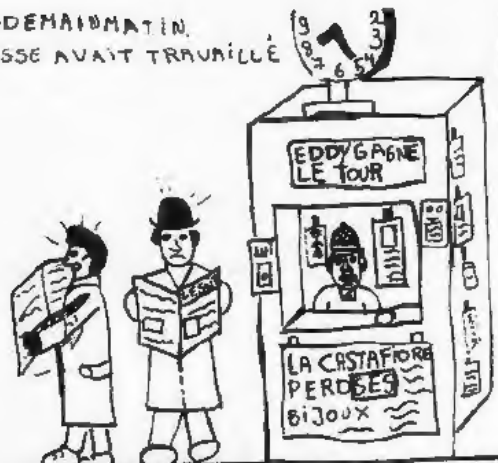 DEMAINMATIN
SSE AVAIT TRAVAILLÉ
9 8 7 6 5 4 3 2
EDDY GAGNE
LE TOUR
LA CASTAFIORE
PERD SES
BIJOUX